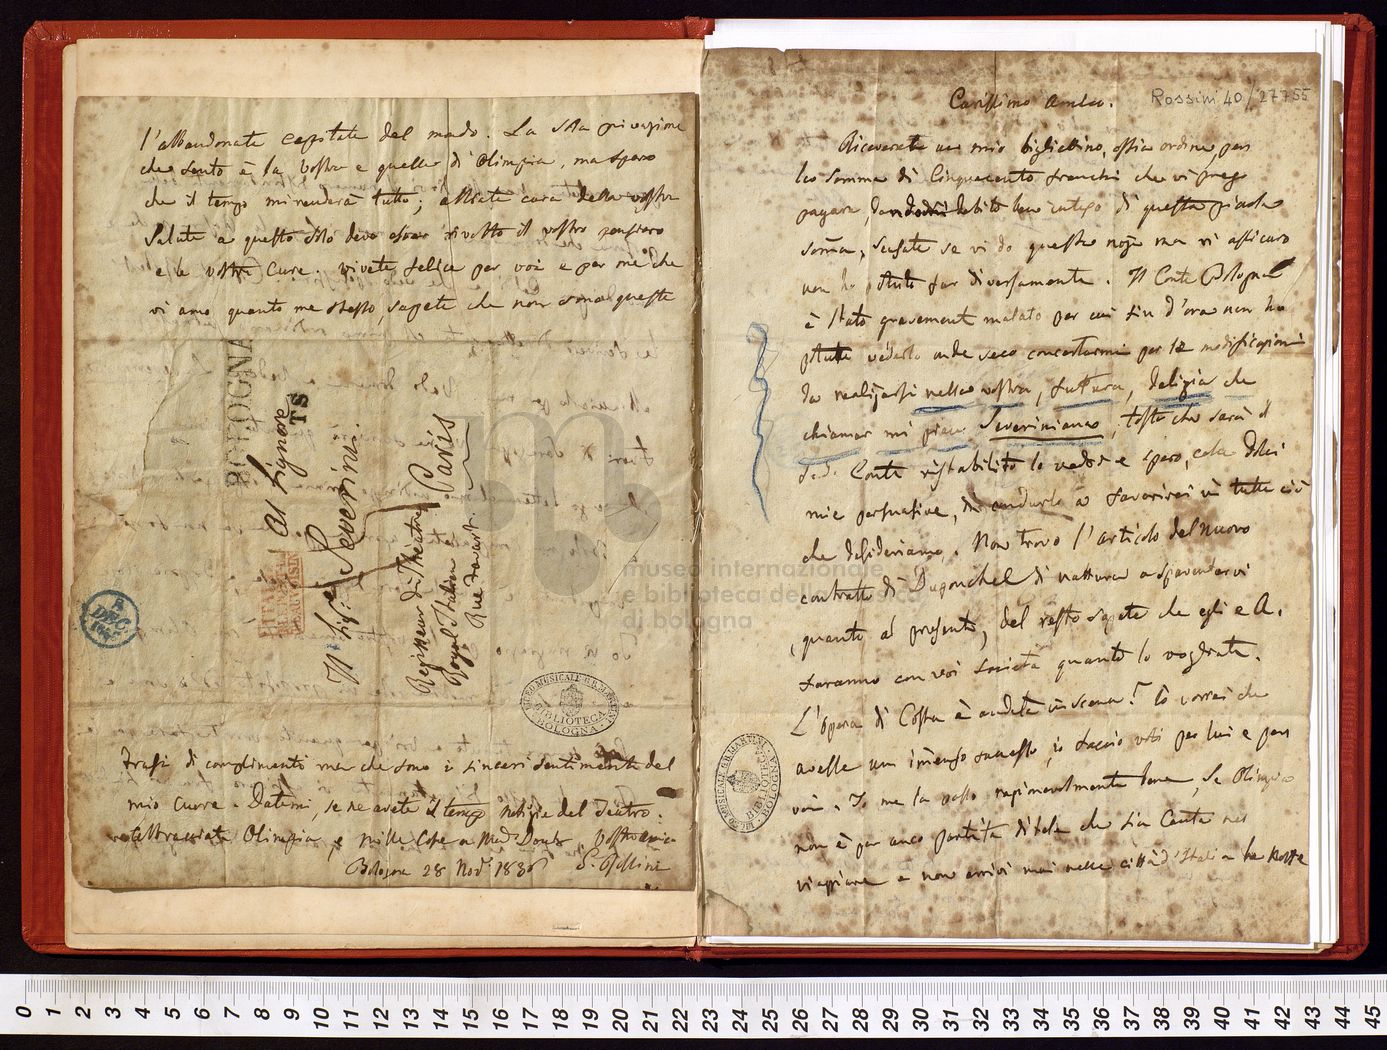 Carissimo Amico.
Rossini 40/27755
Riceverete un mio bigliettino, ossia ordine, per
la Somma di Cinquecento franchi che vi prego
pagare, debito ben inteso di questa piccola
Somma, Scusate se vi do questa noja ma vi assicuro
non ho potuto far diversamente. Il Conte Bologna
è stato gravemente malato per cui fin d'ora non ho
potuto vederlo onde seco concertarmi per le modificazioni
da realizzarsi nella vostra, futura, delizia che
chiamar mi piace Severiniana, tosto che sarà il
Sud. Conte ristabilito lo vedrò e spero, colle dolci
mie persuasive, di indurlo a favorirvi in tutto ciò
che desideriamo. Non trovo l'articolo del nuovo
contratto di Duponchel di nattura a spaventarvi
quanto al presente, del resto sapete che egli e A.
faranno con voi società quanto lo vogliate.
L'opera di Costa è andata in scena? Io vorrei che
avesse un immenso successo, io faccio voti per lui e per
voi. Io me la passo raggionevolmente bene, Se Olimpia
non è per anco partita ditele che sia Cauta nel
viaggiare e non arrivi mai nelle città d'Italia la Notte
l'abbandonate cappitate del modo. La sola privazione
che sento è la vostra e quella di Olimpia, ma spero
che il tempo mi renderà tutto; abbiate cura della vostra
Salute a questo solo deve esser rivolto il vostro pensiero
e le vostre Cure. vivete felice per voi e per me che
vi amo quanto me stesso, sappiate che non sono queste
BOLOGNA
TS
Al Signore
Il Sig.e Severini.
Regisseur du Theatre
Royal Italien
Rue Favart.
Paris
DEC
frasi di complimenti ma che sono i sinceri sentimenti del
mio Cuore. Datemi, se ne avete il tempo notizie del Teatro.
abbracciate Olimpia, e mille Cose a Mad. vostro amico
Bologna 28 Nov. 1836 G. Rossini
MUSEO MUSICALE G.B. MARTINI
BIBLIOTECA
BOLOGNA
MUSEO MUSICALE G.B. MARTINI
BIBLIOTECA
BOLOGNA
museo internazionale
e biblioteca della musica
di bologna
0 1 2 3 4 5 6 7 8 9 10 11 12 13 14 15 16 17 18 19 20 21 22 23 24 25 26 27 28 29 30 31 32 33 34 35 36 37 38 39 40 41 42 43 44 45